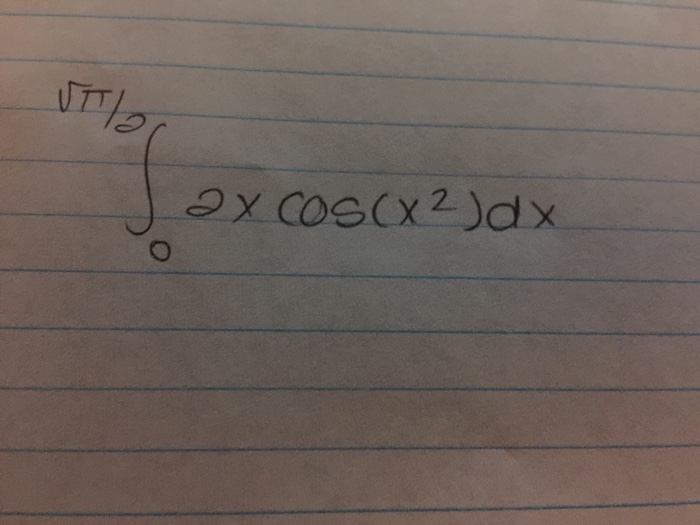 √π/2
∫ 2x cos(x²)dx
0